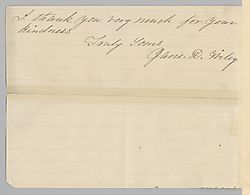 I thank you very much for your
kindness
Truly Yours
Jane. D.